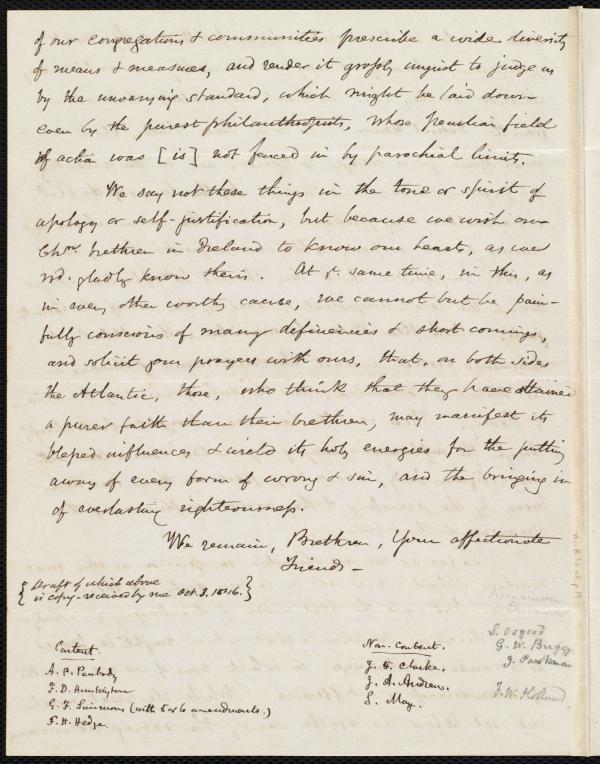 of our congregations & communities prescribe a wide diversity
of means & measures, and render it grossly unjust to judge us
by the unvarying standard, which might be laid down
even by the purest philanthropists, whose peculiar field
of action was [is] not fenced in by parochial limits.
We say not these things in the tone or spirit of
apology or self-justification, but because we wish our
Chn. brethren in Ireland to know our hearts, as we
wd. gladly know theirs. At ye. same time, in this, as
in every other worthy cause, we cannot but be pain-
fully conscious of many deficiencies & short comings,
and solicit your prayers with ours, that, on both sides
the Atlantic, those, who think that they have attained
a purer faith than their brethren, may manifest its
blessed influences & wield its holy energies for the putting
away of every form of wrong & sin, and the bringing in
of everlasting righteousness.
We remain, Brethren, Your affectionate
Friends—
{Draft of which above
is copy - received by me Oct. 3. 1846.}
Content.
A. P. Peabody
F. D. Huntington
G. F. Simmons (with 5 or 6 amendments.)
F. H. Hedge.
Non-Content.
J. F. Clarke.
J. A. Andrew.
S. May.
Remainder
S. Osgood
G. W. Briggs
J. Parkman